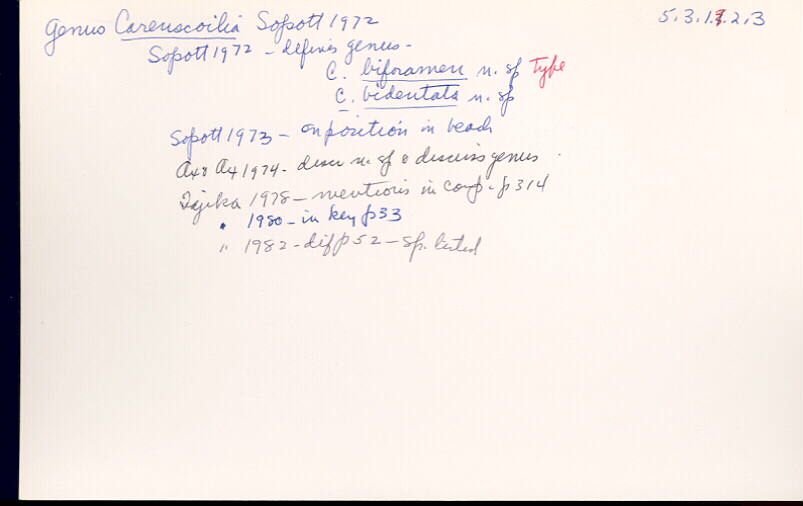 Genus Carenscoilia Sopott 1972 5.3.1.9.2.3
Sopott 1972 - defines genus -
C. biforamen n. sp type
C. bidentata n. sp
Sopott 1973 - on position in beach
Ax & Ax 1974 - descr n. sp & discuss genus.
Tajika 1978 - mentions in comp. p 314
" 1980 - in key p 33
" 1982 - dif p 52 - sp. listed